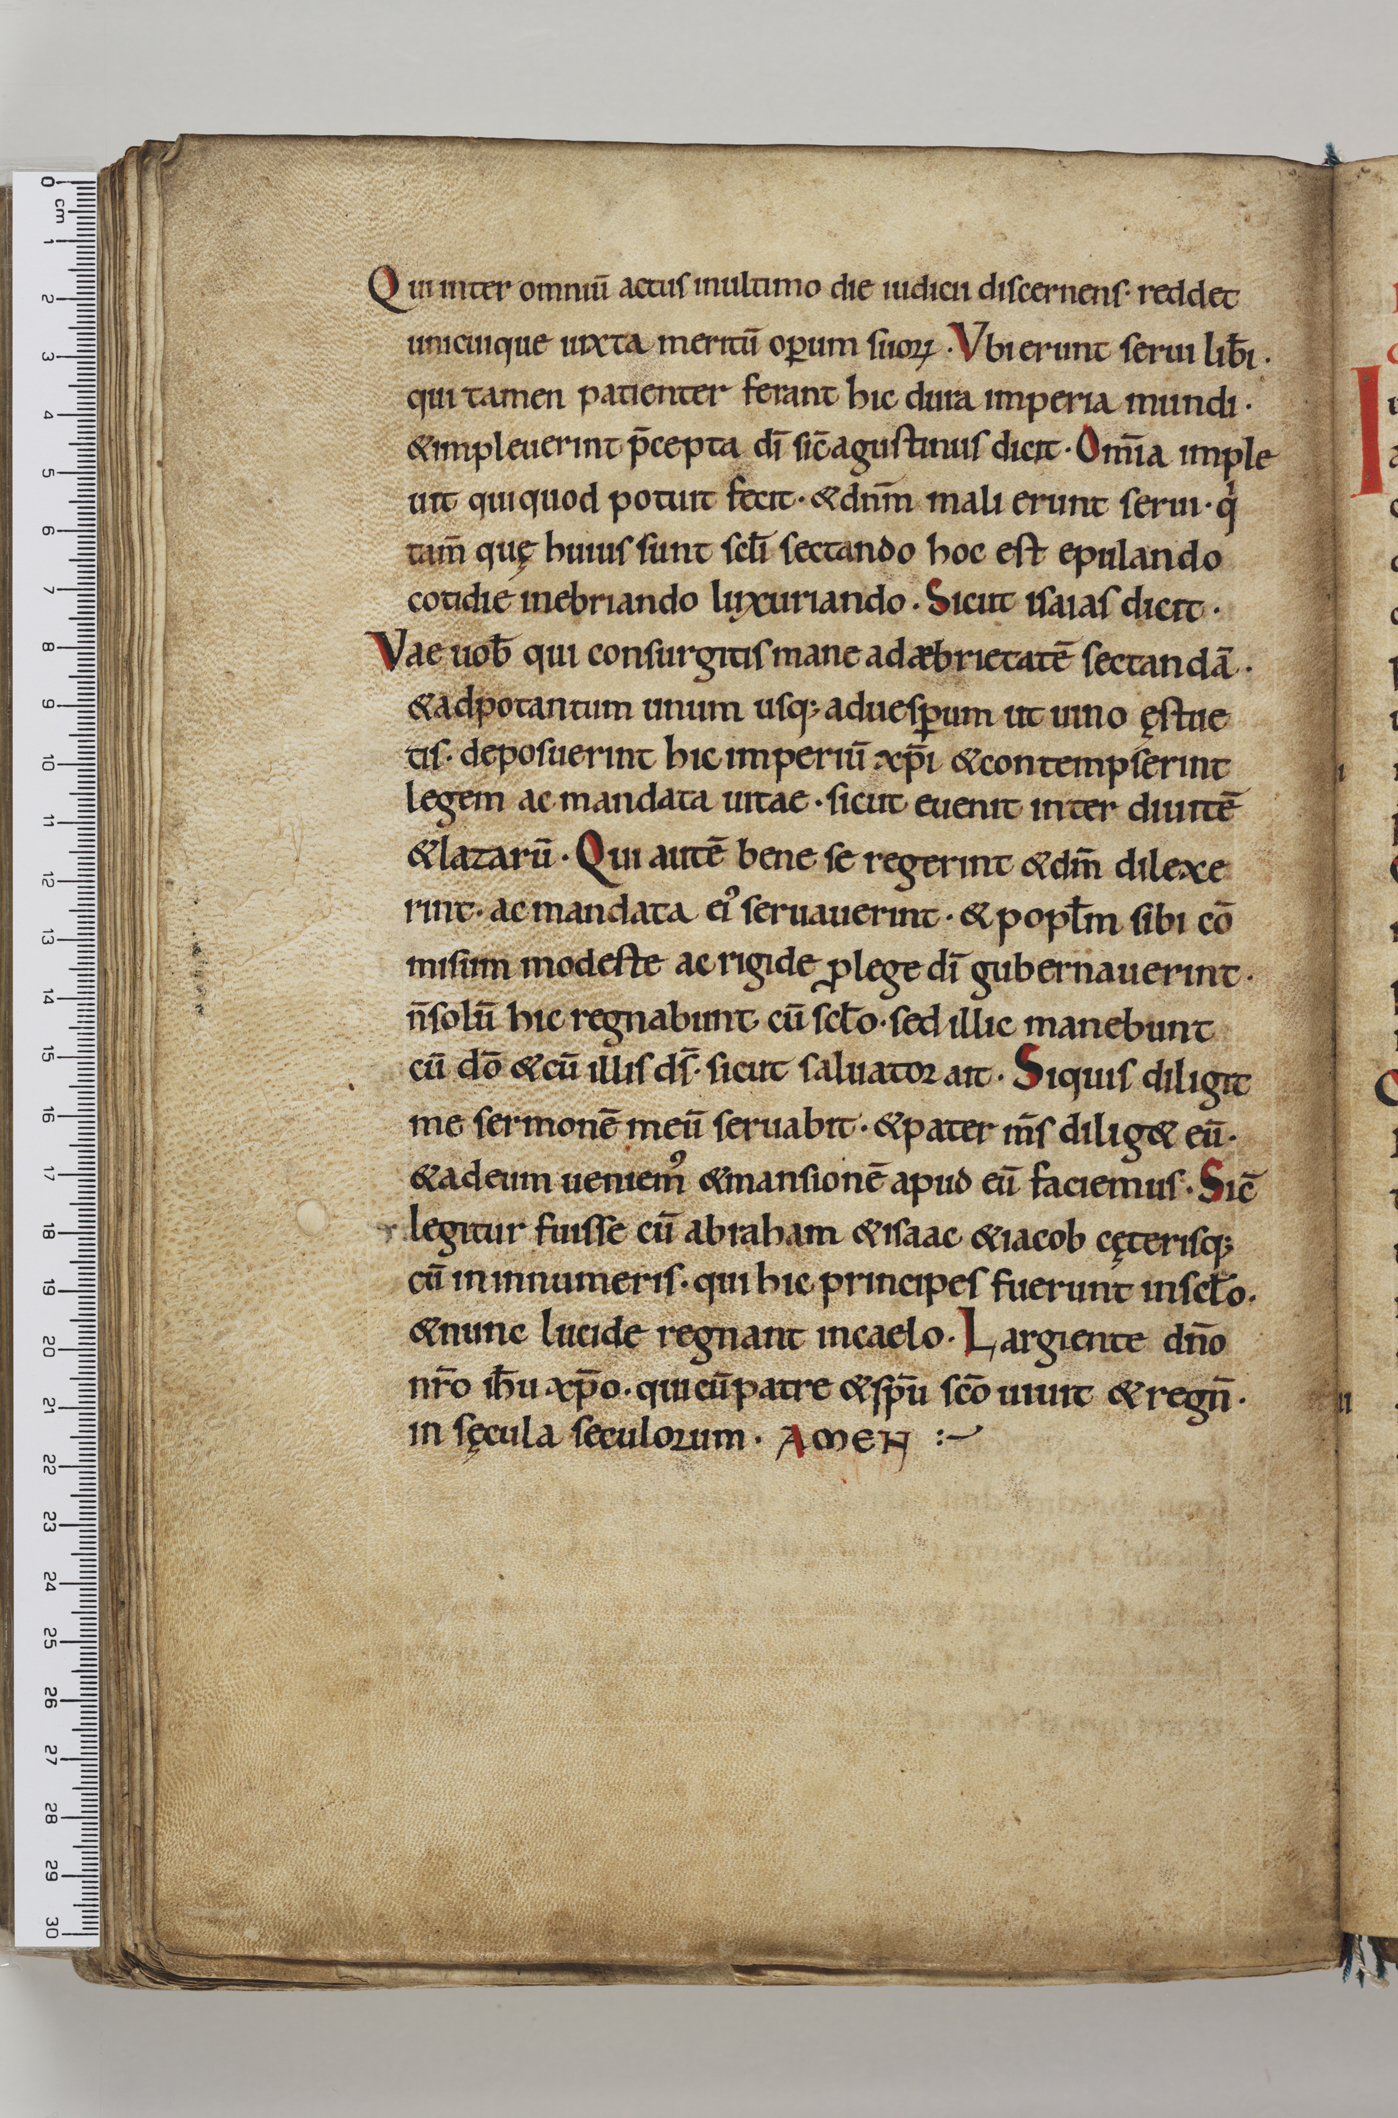 Qui inter omniū actus in ultimo die iudicii discernens· reddet
unicuique iuxta meritū oꝑum suoꝝ · Vbi erunt serui lib̄i ·
qui tamen patienter ferant hic dura imperia mundi ·
& impleuerint p̄cepta dī sic̄ agustinus dicit · Om̄ia imple
uit qui quod potuit fecit · & dn̄m mali erunt serui · qi
tam̄ quę huius sunt scl̄i sectando hoc est epulando
cotidie inebriando luxuriando · Sicut isaias dicit ·
Vae uob̄ qui consurgitis mane ad æbrietatē sectandā ·
& ad potantum unum usq; ad uesꝑum ut uino ęstue
tis · deposuerint hic imperiū xp̄i & contempserint
legem ac mandata uitae · sicut euenit inter diuitē
& lazarū · Qui autē bene se regerint & dm̄ dilexe
rint · ac mandata eiꝰ seruauerint · & popl̄m sibi cō
misum modeste ac rigide ꝓ lege dī gubernauerint ·
n̄ solū hic regnabunt cū scl̄o · sed illic manebunt
cū dō & cū illis ds̄ · sicut saluator ait · Siquis diligit
me sermonē meū seruabit · & pater m̄s dilig& eū ·
& ad eum ueniemꝰ & mansionē apud eū faciemus · Sic̄
legitur fuisse cū abraham & isaac & iacob cęterisq;
cū in innumeris · qui hic principes fuerunt in scl̄o ·
& nunc lucide regnant in caelo · Largiente dn̄o
nr̄o ih̄u xp̄o · qui cū patre & sp̄u sc̄o uiuit & regn̄ ·
in sęcula seculorum · AMEN :~
0
cm
1
2
3
4
5
6
7
8
9
10
11
12
13
14
15
16
17
18
19
20
21
22
23
24
25
26
27
28
29
30